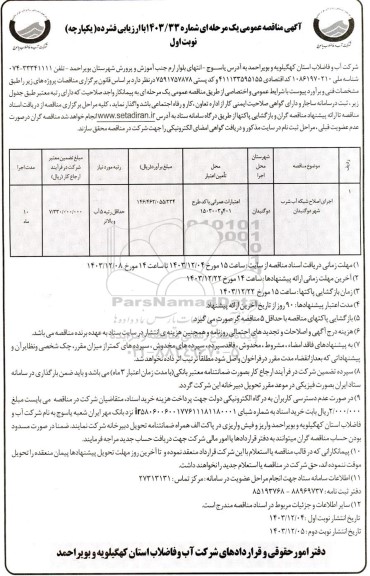 آگهی مناقصه عمومی یک مرحله ای شماره ۱۴۰۳/۳۳ با ارزیابی فشرده (یکپارچه)
نوبت اول
شرکت آب و فاضلاب استان کهگیلویه و بویراحمد به آدرس یاسوج - انتهای بلوار ارم جنب آموزش و پرورش شهرستان بویراحمد - تلفن ۳۳۳۴۱۱۱۱-۰۷۴
شناسه ملی ۱۰۸۶۱۹۷۰۲۱۰ کد اقتصادی ۴۱۱۱۳۳۵۹۵۱۵۵ و کد پستی ۷۵۹۱۷۵۷۸۷۸ در نظر دارد بر اساس قانون برگزاری مناقصات پروژه های زیر را طبق
مشخصات فنی و برآورد پیوست با شرایط عمومی و اختصاصی از طریق مناقصه عمومی یک مرحله ای به پیمانکار واجد صلاحیت که دارای رتبه معتبر طبق جدول
زیر، ثبت در سامانه ساجار و دارای گواهی صلاحیت ایمنی کار از اداره تعاون، کار و رفاه اجتماعی باشد واگذار نماید، کلیه مراحل برگزاری مناقصه از دریافت اسناد
مناقصه تا ارائه پیشنهاد مناقصه گران و بازگشایی پاکتها از طریق درگاه سامانه ستاد به آدرس www.setadiran.ir انجام خواهد شد مناقصه گران در صورت
عدم عضویت قبلی، مراحل ثبت نام در سایت مذکور و دریافت گواهی امضای الکترونیکی را جهت شرکت در مناقصه محقق سازند.
ردیف | موضوع مناقصه | شهرستان محل اجرا | محل تأمین اعتبار | مبلغ برآورد(ریال) | رتبه مورد نیاز | مبلغ تضمین معتبر شرکت در فرآیند ارجاع کار (ریال) | مدت اجرا
۱ | اجرای اصلاح شبکه آب شرب شهر دوگنبدان | دوگنبدان | اعتبارات عمرانی با کد طرح ۱۵۰۳۰۰۲۰۴۰۲ | ۱۴۶/۴۶۲/۰۵۵/۳۳۴ | حداقل رتبه ۵ آب و بالاتر | ۷/۳۳۰/۰۰۰/۰۰۰ | ۱۰ ماه
۱) مهلت زمانی دریافت اسناد مناقصه از سایت: ساعت ۱۵ مورخ ۱۴۰۳/۱۲/۰۴ تا ساعت ۱۴ مورخ ۱۴۰۳/۱۲/۰۸
۲) آخرین مهلت زمانی ارائه پیشنهادها: ساعت ۱۴ مورخ ۱۴۰۳/۱۲/۲۲
۳) زمان بازگشایی پاکتها: ساعت ۱۵ مورخ ۱۴۰۳/۱۲/۲۲
۴) مدت اعتبار پیشنهادها: ۹۰ روز از تاریخ آخرین ارائه پیشنهاد
۵) بازگشایی پاکتهای مناقصه با حداقل ۵ مناقصه گر صورت می گیرد.
۶) هزینه درج آگهی و اصلاحات و تجدید های احتمالی روزنامه و همچنین هزینه ی انتشار در سایت ستاد به عهده برنده مناقصه می باشد.
۷) به پیشنهادهای فاقد امضاء، مشروط، مخدوش، فاقد سپرده، سپرده های مخدوش، سپرده های کمتر از میزان مقرر، چک شخصی و نظایر آن و
پیشنهاداتی که بعد از انقضاء مدت مقرر در فراخوان واصل شود مطلقاً ترتیب اثر داده نخواهد شد.
۸) سپرده تضمین شرکت در فرآیند ارجاع کار بصورت ضمانتنامه معتبر بانکی (با مدت زمان اعتبار ۳ماه) می باشد و باید ضمن بارگذاری در سامانه
ستاد ایران بصورت فیزیکی در موعد مقرر تحویل دبیرخانه این شرکت گردد.
۹) در صورت عدم دسترسی کاربران به درگاه الکترونیکی دولت جهت پرداخت هزینه خرید اسناد، متقاضیان شرکت در مناقصه می بایست مبلغ
۲/۰۰۰/۰۰۰ ریال بابت خرید اسناد به شماره شبای ir نزد بانک مهر ایران شعبه یاسوج به نام شرکت آب و
فاضلاب استان کهگیلویه و بویراحمد واریز و فیش واریزی در پاکت الف همراه ضمانتنامه تحویل دبیرخانه شرکت نمایند. ضمنا در صورت مسدود
بودن حساب مناقصه گران میتوانند به دفتر قراردادها یا امور مالی شرکت جهت دریافت حساب جدید مراجعه فرمایند.
۱۰) پیمانکارانی که در قالب مناقصه یا استعلام با این شرکت قرارداد منعقد نموده و تا آخرین روز مهلت تحویل پیشنهادها پیمان منعقده را تحویل
موقت ننموده اند، حق شرکت در مناقصه یا استعلام جدید را نخواهند داشت.
۱۱) اطلاعات سامانه ستاد جهت انجام مراحل عضویت در سامانه: مرکز تماس: ۲۷۳۱۳۱۳۱
دفتر ثبت نامه: ۸۸۹۶۹۷۳۷ - ۸۵۱۹۳۷۶۸
۱۲) سایر اطلاعات و جزئیات مربوط در اسناد مناقصه مندرج است.
تاریخ انتشار نوبت اول: ۱۴۰۳/۱۲/۰۴
تاریخ انتشار نوبت دوم: ۱۴۰۳/۱۲/۰۵
دفتر امور حقوقی و قراردادهای شرکت آب و فاضلاب استان کهگیلویه و بویراحمد